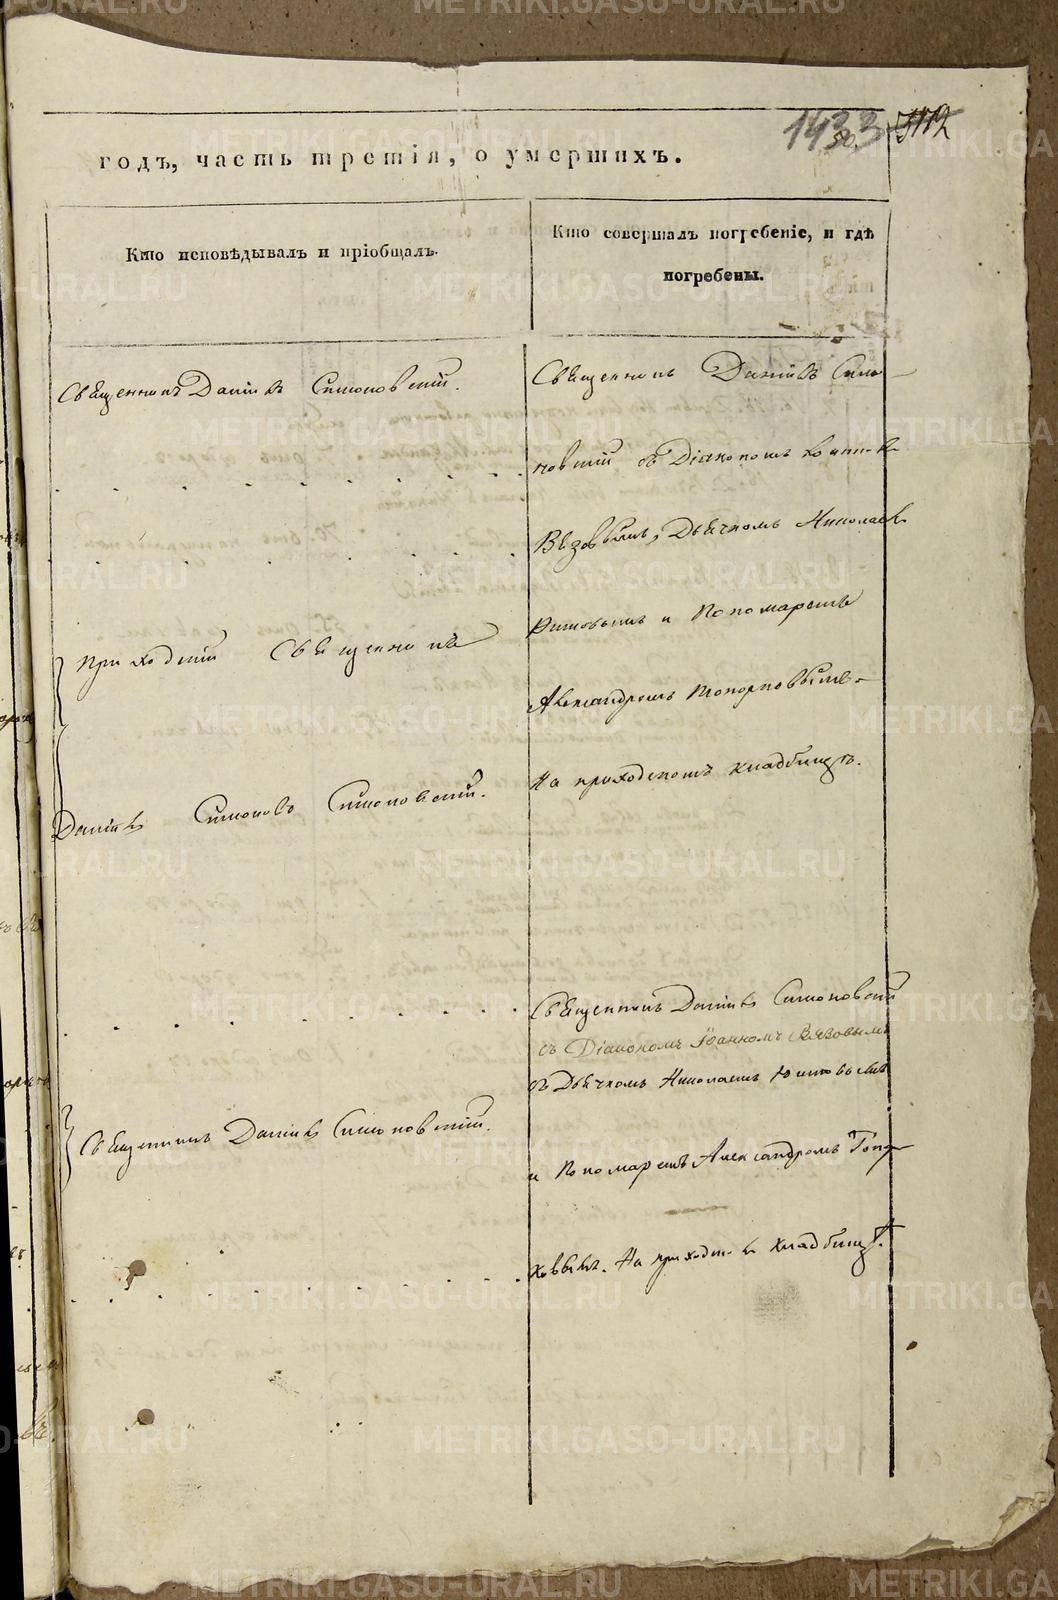 1433
годъ, часть третія, о умершихъ.
Кто исповѣдывалъ и пріобщалъ.
Кто совершалъ погребеніе, и гдѣ
погребены.
Священникъ Даніилъ Симоновскій.
Приходскій Священникъ
Даніилъ Симоновъ Симоновскій.
Священникъ Даніилъ Симоновскій.
Священникъ Даніилъ Симо-
новскій съ Діакономъ
Вязовымъ, Дьячкомъ Николаемъ
и Пономаремъ
Александромъ Топорковымъ
На приходскомъ кладбищѣ.
Священникъ Даніилъ Симоновскій
съ Діакономъ Іоанномъ Вязовымъ
съ Дьячкомъ Николаемъ
и Пономаремъ Александромъ Топор-
ковымъ. На приходск. кладбищѣ.
METRIKI.GASO-URAL.RU